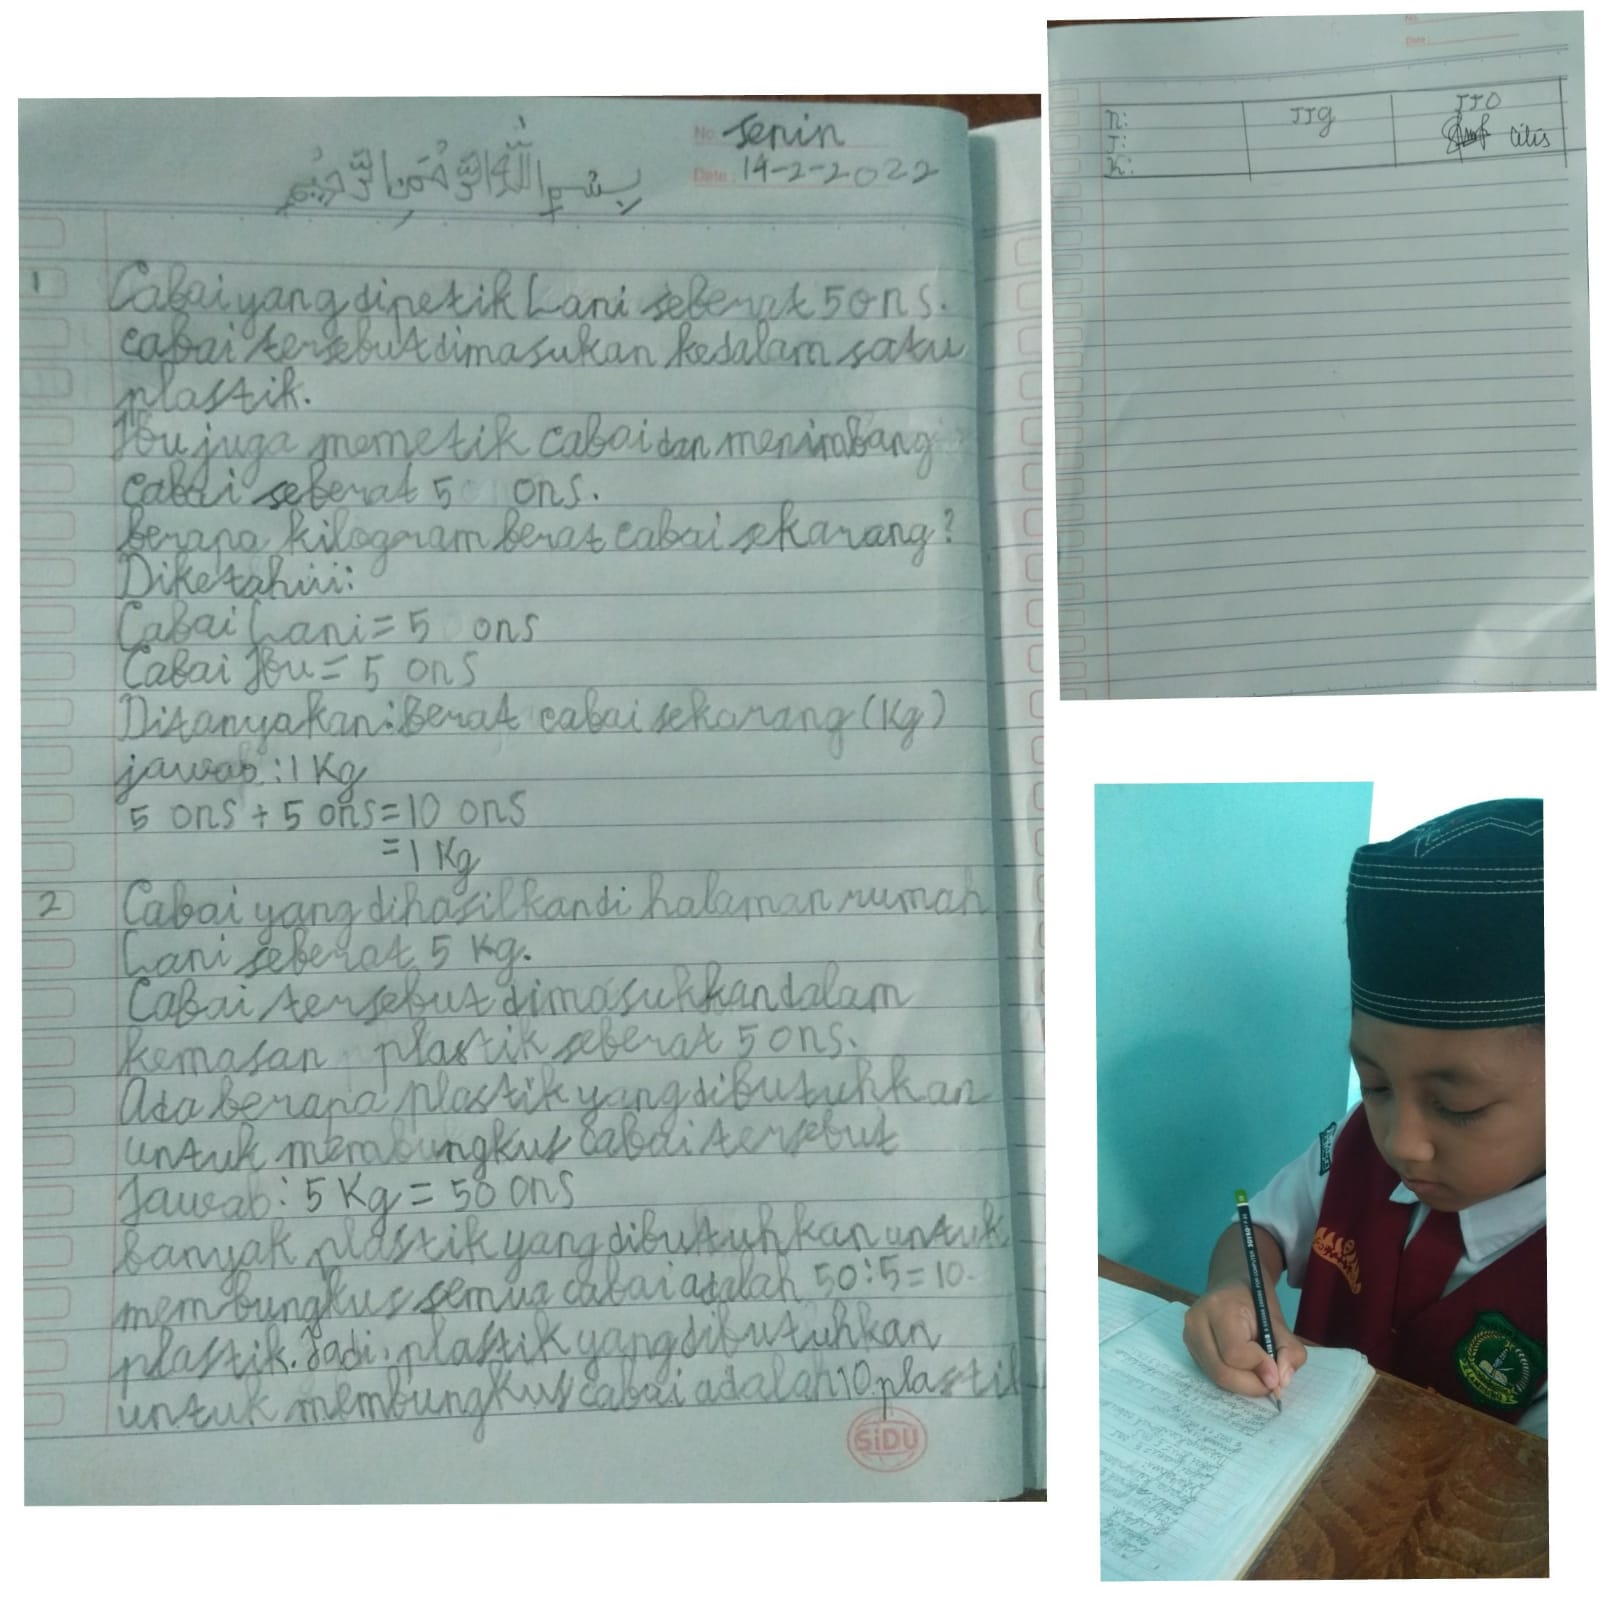 No. Senin
Date: 14-2-2022
بسم الله الرحمن الرحيم
1 Cabai yang dipetik Lani seberat 5 ons.
cabai tersebut dimasukan kedalam satu
plastik.
Ibu juga memetik cabai dan menimbang
cabai seberat 5 ons.
berapa kilogram berat cabai sekarang?
Diketahui:
Cabai Lani = 5 ons
Cabai Ibu = 5 ons
Ditanyakan: Berat cabai sekarang (Kg)
jawab : 1 Kg
5 ons + 5 ons = 10 ons
= 1 Kg
2 Cabai yang dihasilkan di halaman rumah
Lani seberat 5 Kg.
Cabai tersebut dimasukkan dalam
kemasan plastik seberat 5 ons.
Ada berapa plastik yang dibutuhkan
untuk membungkus cabai tersebut
Jawab : 5 Kg = 50 ons
banyak plastik yang dibutuhkan untuk
membungkus semua cabai adalah 50 : 5 = 10
plastik. Jadi, plastik yang dibutuhkan
untuk membungkus cabai adalah 10 plastik
SiDU
No.
Date :
N: TTG TTO
T:
K: